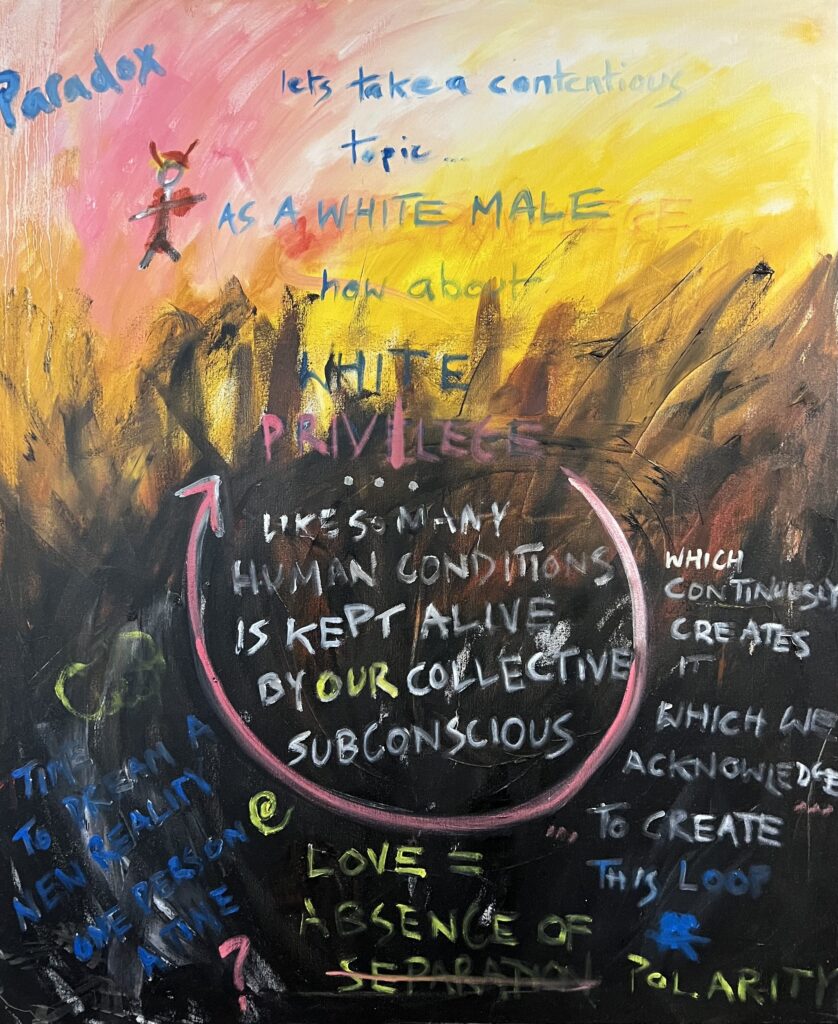 Paradox
lets take a contentious
topic...
AS A WHITE MALE
how about
WHITE
PRIVILEGE
...
LIKE SO MANY
HUMAN CONDITIONS
IS KEPT ALIVE
BY OUR COLLECTIVE
SUBCONSCIOUS
WHICH
CONTINUOSLY
CREATES
IT
WHICH WE
ACKNOWLEDGE
...
... TO CREATE
THIS LOOP
TIME
TO DREAM A
NEW REALITY
ONE PERSON
A TIME
@
LOVE =
ABSENCE OF
SEPARATION POLARITY
?